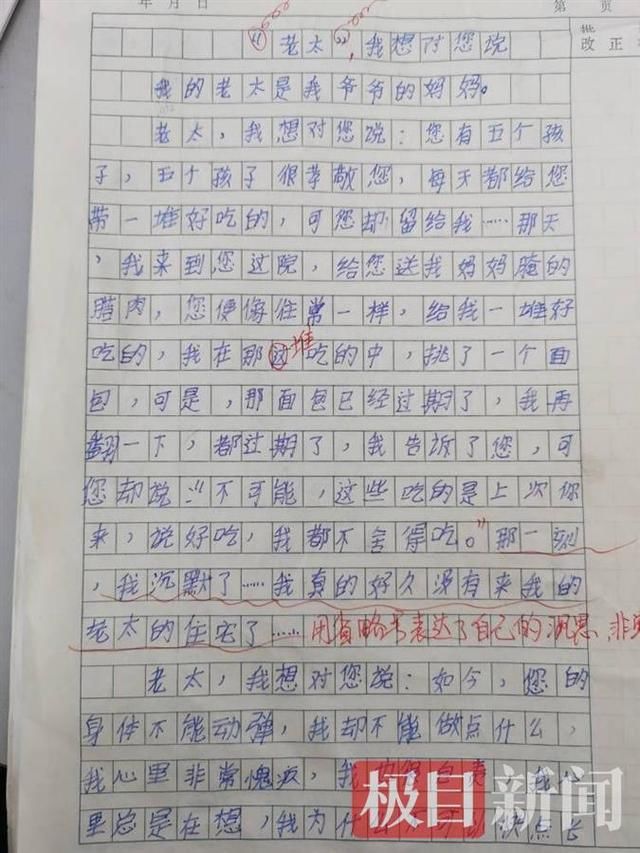 年 月 日 第 页
批
改正
“老太”,我想对您说
我的老太是我爷爷的妈妈。
老太,我想对您说:您有五个孩
子,五个孩子很孝敬您,每天都给您
带一堆好吃的,可您却留给我……那天
,我来到您这院,给您送我妈妈腌的
腊肉,您便像往常一样,给我一堆好
吃的,我在那堆吃的中,挑了一个面
包,可是,那面包已经过期了,我再
翻一下,都过期了,我告诉了您,可
您却说:“不可能,这些吃的是上次你
来,说好吃,我都不舍得吃。”那一刻
,我沉默了……我真的好久没有来我的
老太的住宅了……用省略号表达了自己的沉思,非
老太,我想对您说:如今,您的
身体不能动弹,我却不能做点什么,
我心里非常愧疚,我
极目新闻
里总是在想,我为什 快点长